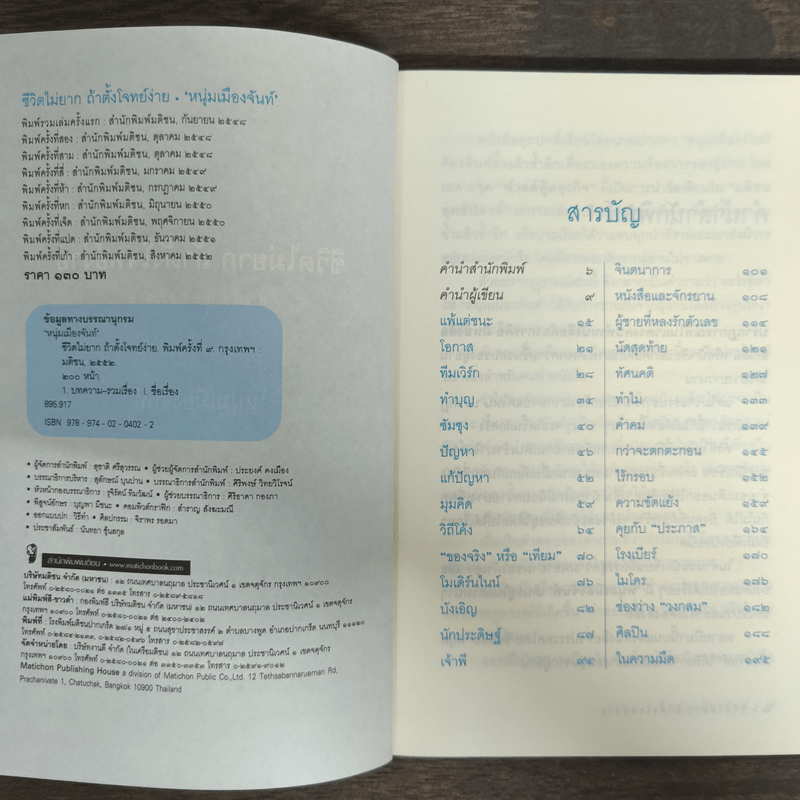 ชีวิตไม่ยาก ถ้าตั้งโจทย์ง่าย • 'หนุ่มเมืองจันท์'
พิมพ์รวมเล่มครั้งแรก : สำนักพิมพ์มติชน, กันยายน ๒๕๔๘
พิมพ์ครั้งที่สอง : สำนักพิมพ์มติชน, ตุลาคม ๒๕๔๘
พิมพ์ครั้งที่สาม : สำนักพิมพ์มติชน, ตุลาคม ๒๕๔๘
พิมพ์ครั้งที่สี่ : สำนักพิมพ์มติชน, มกราคม ๒๕๔๙
พิมพ์ครั้งที่ห้า : สำนักพิมพ์มติชน, กรกฎาคม ๒๕๔๙
พิมพ์ครั้งที่หก : สำนักพิมพ์มติชน, มิถุนายน ๒๕๕๐
พิมพ์ครั้งที่เจ็ด : สำนักพิมพ์มติชน, พฤศจิกายน ๒๕๕๐
พิมพ์ครั้งที่แปด : สำนักพิมพ์มติชน, ธันวาคม ๒๕๕๑
พิมพ์ครั้งที่เก้า : สำนักพิมพ์มติชน, สิงหาคม ๒๕๕๒
ราคา ๑๓๐ บาท
ข้อมูลทางบรรณานุกรม
'หนุ่มเมืองจันท์'
ชีวิตไม่ยาก ถ้าตั้งโจทย์ง่าย. พิมพ์ครั้งที่ ๙ กรุงเทพฯ :
มติชน, ๒๕๕๒.
๒๐๐ หน้า
1. บทความ-รวมเรื่อง I. ชื่อเรื่อง
895.917
ISBN 978 - 974 - 02 - 0402 - 2
• ผู้จัดการสำนักพิมพ์ : สุชาติ ศรีสุวรรณ • ผู้ช่วยผู้จัดการสำนักพิมพ์ : ประยงค์ คงเมือง
• บรรณาธิการบริหาร : สุลักษณ์ บุนปาน • บรรณาธิการสำนักพิมพ์ : ศิริพงษ์ วิทยวิโรจน์
• หัวหน้ากองบรรณาธิการ : รุจิรัตน์ ทิมวัฒน์ • ผู้ช่วยบรรณาธิการ : ศิริธาดา กองภา
• พิสูจน์อักษร : บุญพา มีชนะ • คอมพิวต์กราฟิก : สำราญ สังฆะมณี
• ออกแบบปก : วิธีทำ • ศิลปกรรม : จิราพร รอดมา
• ประชาสัมพันธ์ : นันทยา ชุ้นสกุล
สำนักพิมพ์มติชน • www.matichonbook.com
บริษัทมติชน จำกัด (มหาชน) : ๑๒ ถนนเทศบาลนฤมาล ประชานิเวศน์ ๑ เขตจตุจักร กรุงเทพฯ ๑๐๙๐๐
โทรศัพท์ ๐-๒๕๘๐-๐๐๒๑ ต่อ ๑๒๓๕ โทรสาร ๐-๒๕๘๙-๕๘๑๘
แม่พิมพ์สี-ขาวดำ : กองพิมพ์สี บริษัทมติชน จำกัด (มหาชน) ๑๒ ถนนเทศบาลนฤมาล ประชานิเวศน์ ๑ เขตจตุจักร
กรุงเทพฯ ๑๐๙๐๐ โทรศัพท์ ๐-๒๕๘๐-๐๐๒๑ ต่อ ๒๔๐๐-๒๔๐๒
พิมพ์ที่ : โรงพิมพ์มติชนปากเกร็ด ๒๗/๑ หมู่ ๕ ถนนสุขาประชาสรรค์ ๒ ตำบลบางพูด อำเภอปากเกร็ด นนทบุรี ๑๑๑๒๐
โทรศัพท์ ๐-๒๕๘๔-๒๑๓๓, ๐-๒๕๘๒-๐๕๙๖ โทรสาร ๐-๒๕๘๒-๐๕๙๗
จัดจำหน่ายโดย : บริษัทงานดี จำกัด (ในเครือมติชน) ๑๒ ถนนเทศบาลนฤมาล ประชานิเวศน์ ๑ เขตจตุจักร
กรุงเทพฯ ๑๐๙๐๐ โทรศัพท์ ๐-๒๕๘๐-๐๐๒๑ ต่อ ๓๓๕๐-๓๓๕๓ โทรสาร ๐-๒๕๙๑-๙๐๑๒
Matichon Publishing House a division of Matichon Public Co.,Ltd. 12 Tethsabannarueman Rd,
Prachanivate 1, Chatuchak, Bangkok 10900 Thailand
สารบัญ
คำนำสำนักพิมพ์ ๖
คำนำผู้เขียน ๙
แพ้แต่ชนะ ๑๕
โอกาส ๒๑
ทีมเวิร์ก ๒๘
ทำบุญ ๓๔
ซัมซุง ๔๐
ปัญหา ๔๖
แก้ปัญหา ๕๒
มุมคิด ๕๙
วิถีโค้ง ๖๔
"ของจริง" หรือ "เทียม" ๗๐
โมเดิร์นไนน์ ๗๖
บังเอิญ ๘๒
นักประดิษฐ์ ๘๗
เจ้าพี ๙๔
จินตนาการ ๑๐๑
หนังสือและจักรยาน ๑๐๘
ผู้ชายที่หลงรักตัวเลข ๑๑๔
นัดสุดท้าย ๑๒๑
ทัศนคติ ๑๒๗
ทำไม ๑๓๓
คำคม ๑๓๙
กว่าจะตกตะกอน ๑๔๕
ไร้กรอบ ๑๕๒
ความขัดแย้ง ๑๕๙
คุยกับ "ประภาส" ๑๖๔
โรงเบียร์ ๑๗๐
ไมโคร ๑๗๖
ช่องว่าง "วงกลม" ๑๘๒
ศิลปิน ๑๘๘
ในความมืด ๑๙๕